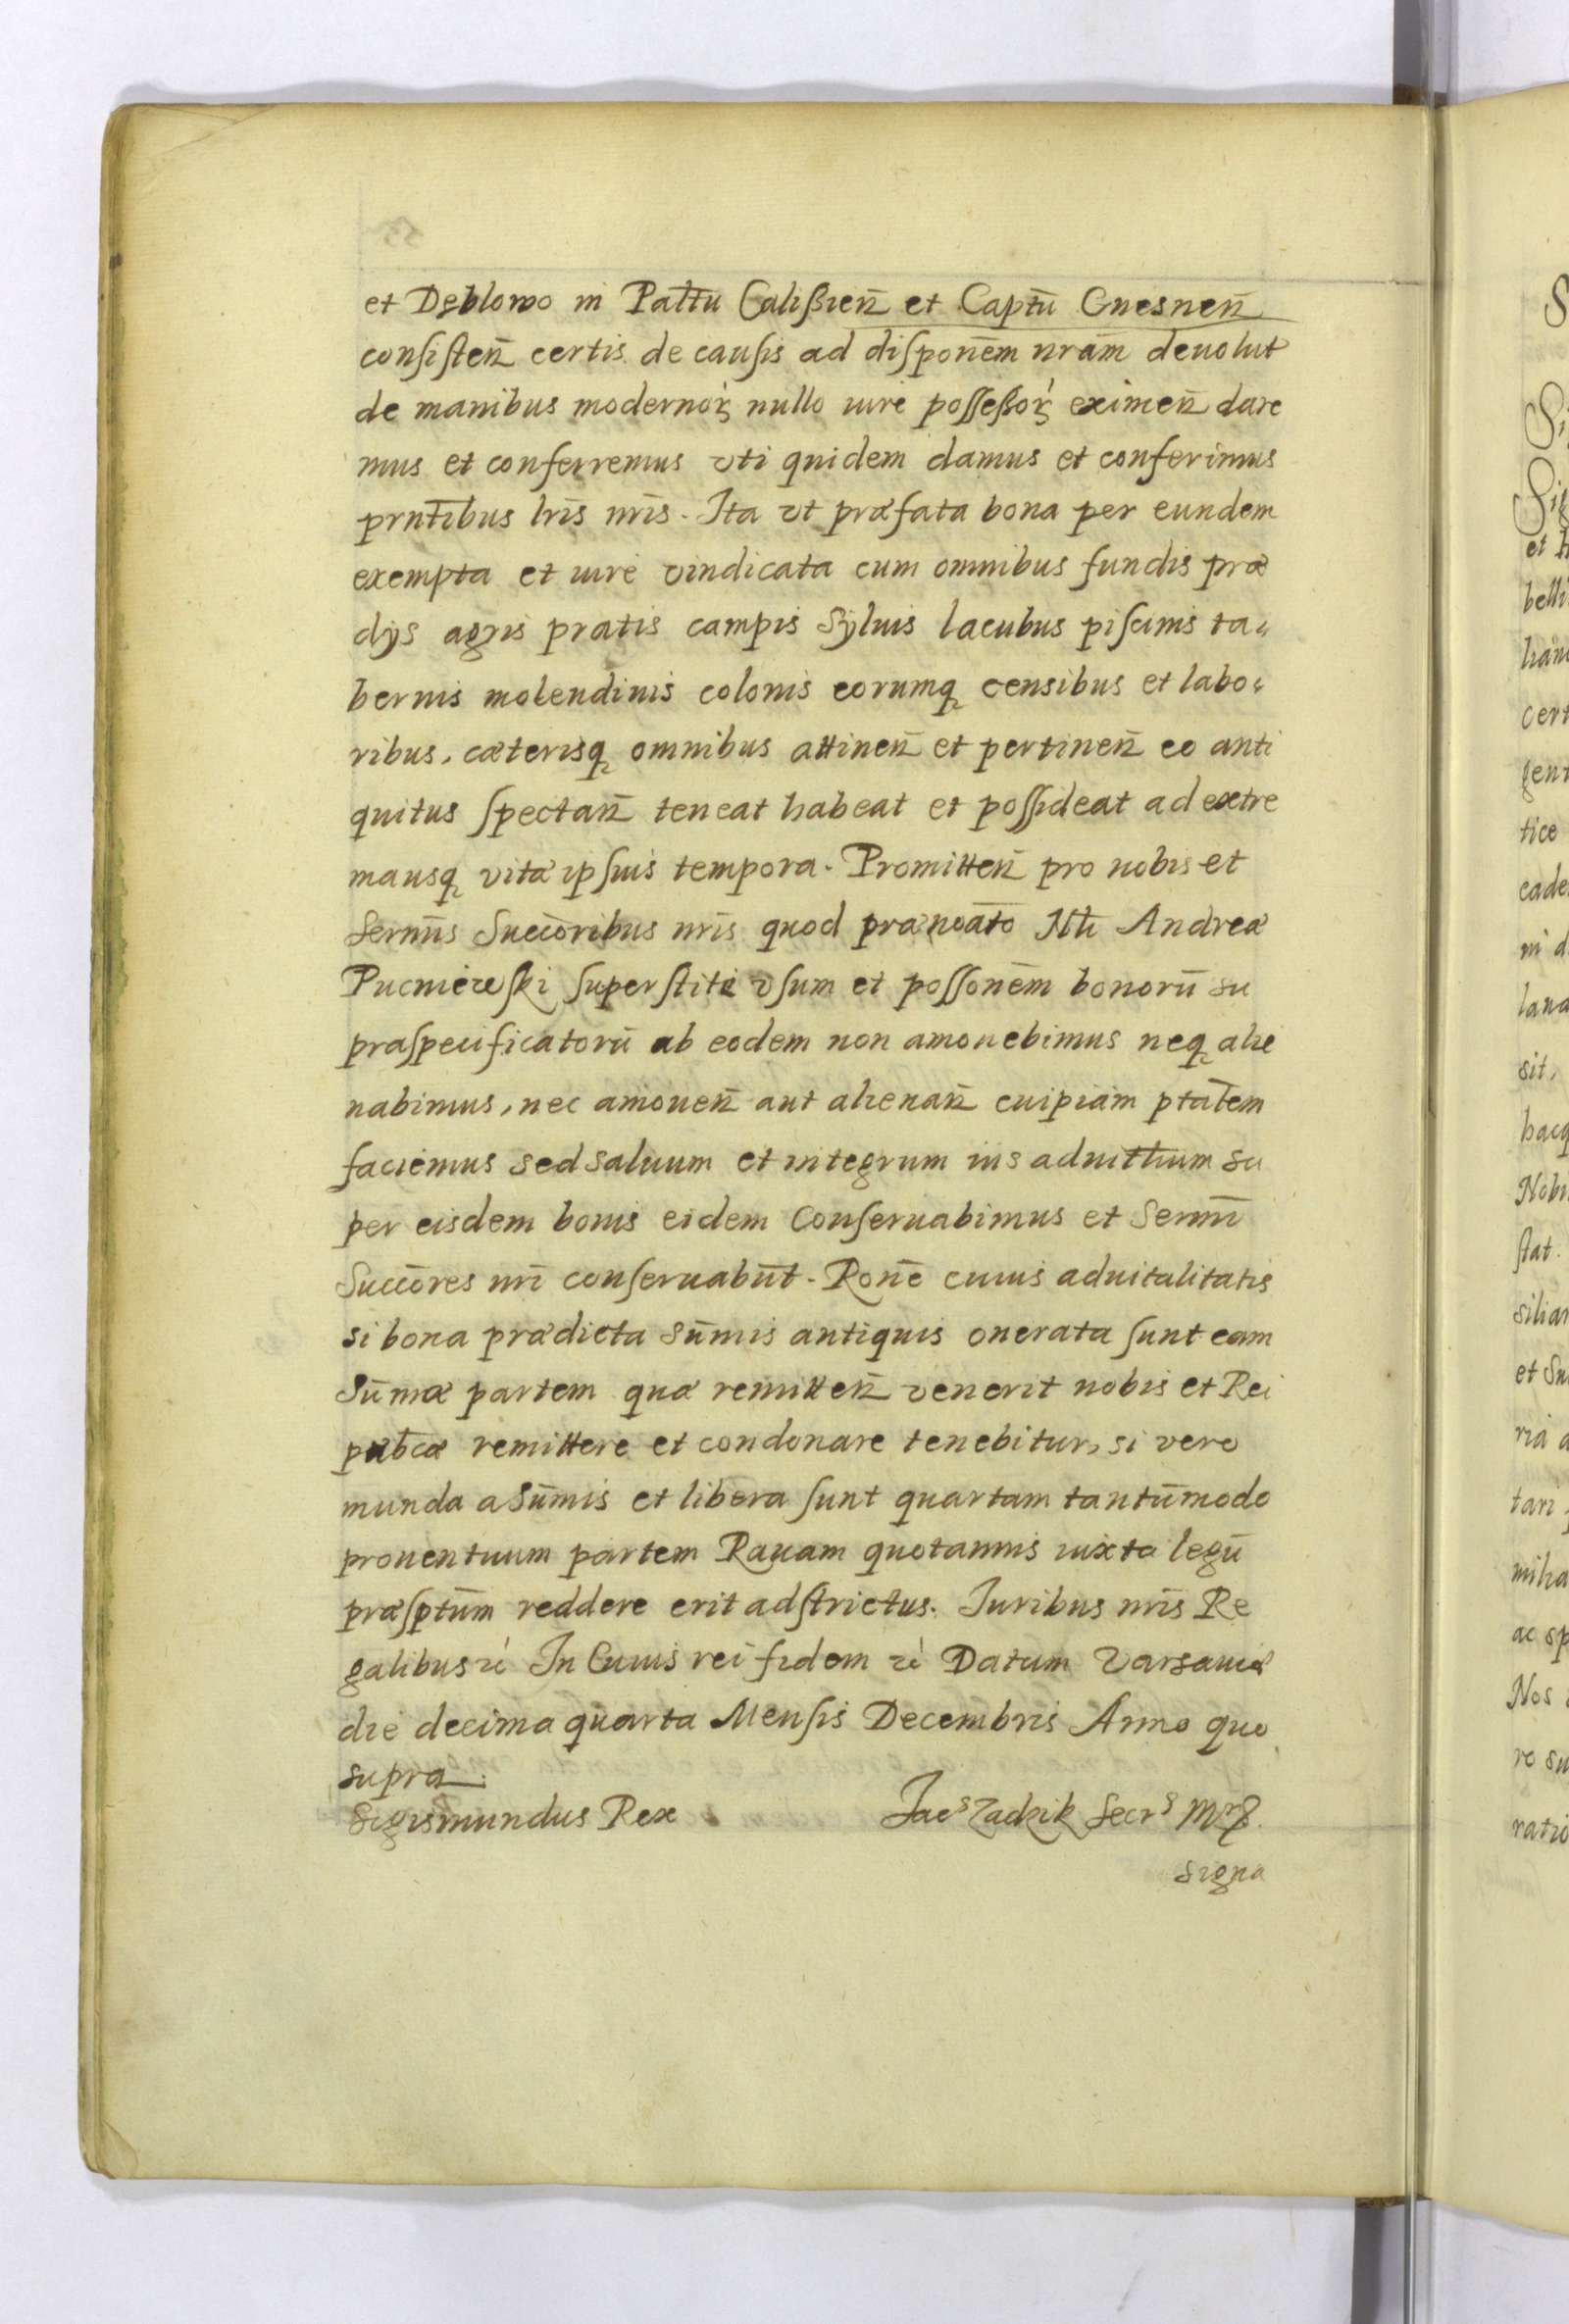 et Dęblowo in Pałtu Calißień et Captū Gnesneń
consisteń certis de causis ad disponēm nrām deuolut
de manibus modernoꝝ nullo iure posseßoꝝ eximeń dare
mus et conferremus vti quidem damus et conferimus
prntibus lris nris. Ita vt præfata bona per eundem
exempta et iure vindicata cum omnibus fundis præ
dijs agris pratis campis syluis lacubus piscinis ta,,
bernis molendinis colonis eorumq censibus et labo,,
ribus, cæterisq omnibus attineń et pertineń eo anti
quitus spectań teneat habeat et possideat ad extre
mausq vitæ ipsius tempora. Promitteń pro nobis et
Sermis Succōribus nris quod prænoāto Nłi Andreæ
superstite vsum et possonēm bonorū su
praspecificatorū ab eodem non amouebimus neq alie
nabimus, nec amoueń aut alienań cuipiam ptatem
faciemus sed saluum et integrum ius aduitłium su
per eisdem bonis eidem conseruabimus et Sermi
Succōres nri conseruabūt. Rone cuius aduitalitatis
si bona prædicta sūmis antiquis onerata sunt eam
Sūmæ partem quæ remitteń venerit nobis et Rei
pubcæ remittere et condonare tenebitur, si vero
munda a sūmis et libera sunt quartam tantūmodo
prouentuum partem Rauam quotannis iuxta legū
præsptum reddere erit adstrictus. Iuribus nris Re
galibus ꝛc In Cuius rei fidem ꝛc Datum Varsauiæ
die decima quarta Mensis Decembris Anno quo
supra.
Sigismundus Rex Jacs Zadzik Secrs
Signa
53